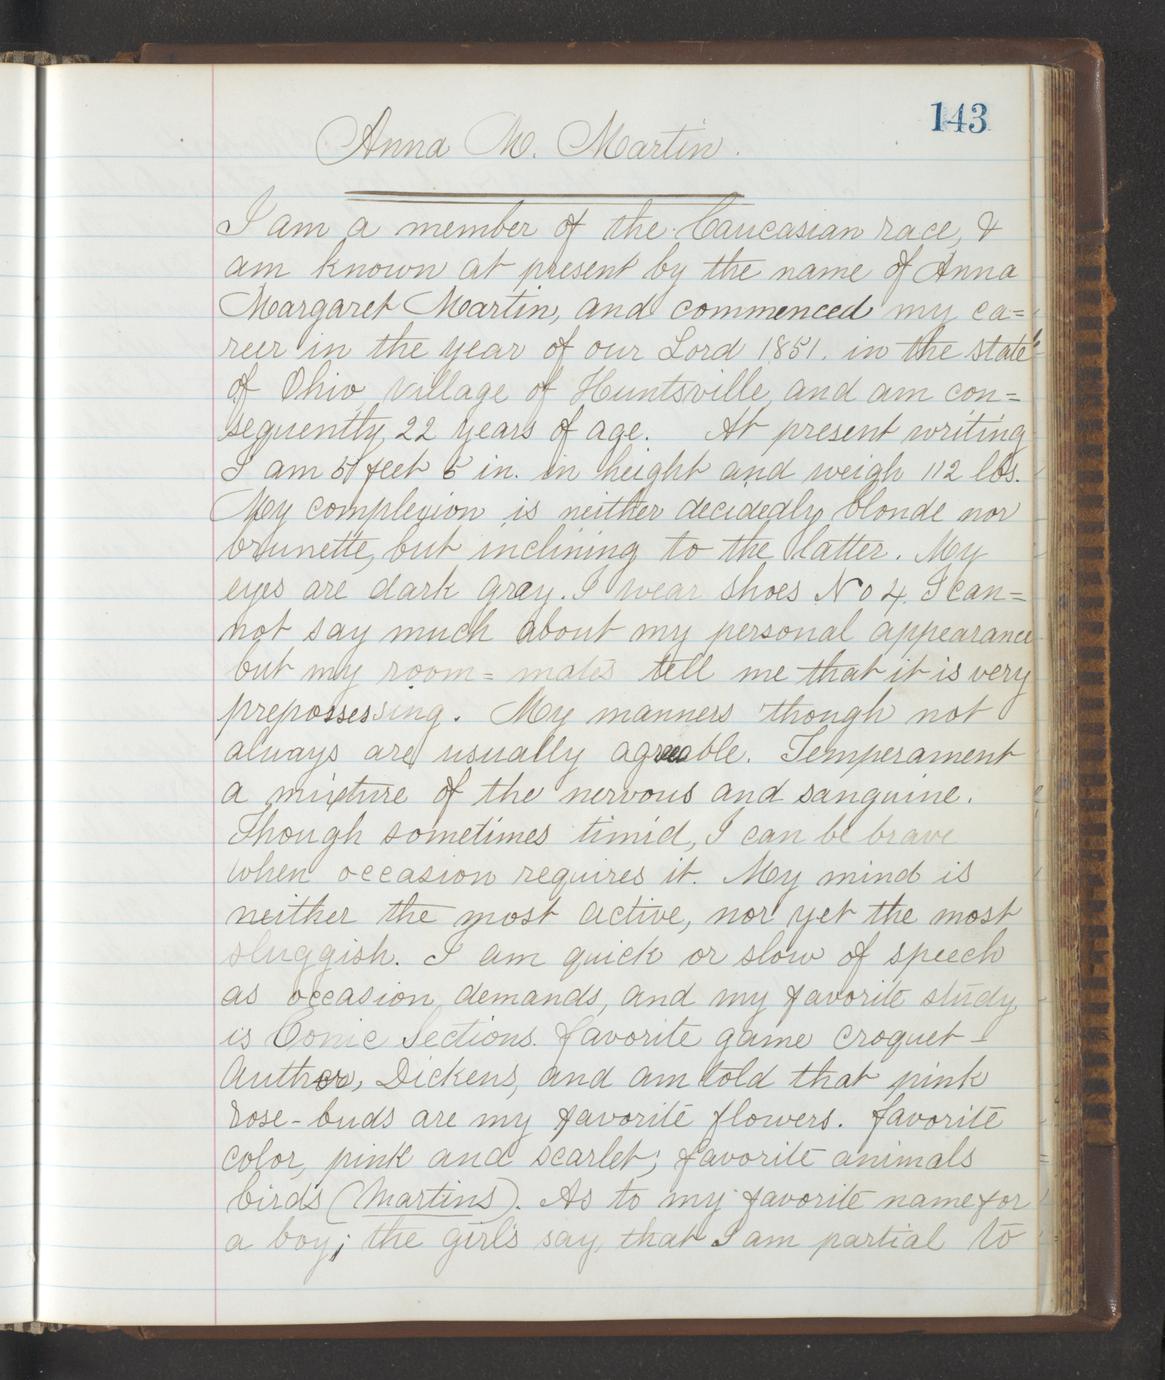 143
Anna M. Martin.
I am a member of the Caucasian race, &
am known at present by the name of Anna
Margaret Martin, and commenced my ca=
reer in the year of our Lord 1851. in the state
of Ohio, village of Huntsville, and am con=
sequently, 22 years of age. At present writing
I am 5 feet 5 in. in height and weigh 112 lbs.
My complexion is neither decidedly blonde nor
brunette, but inclining to the latter. My
eyes are dark gray. I wear shoes No 4. I can=
not say much about my personal appearance
but my room=mates tell me that it is very
prepossessing. My manners though not
always are usually agreeable. Temperament
a mixture of the nervous and sanguine.
Though sometimes timid, I can be brave
when occasion requires it. My mind is
neither the most active, nor yet the most
sluggish. I am quick or slow of speech
as occasion demands, and my favorite study
is Conic Sections. favorite game croquet -
Author, Dickens, and am told that pink
rose-buds are my favorite flowers. favorite
color, pink and scarlet; favorite animals
birds (Martins). As to my favorite name for
a boy; the girls say, that I am partial to